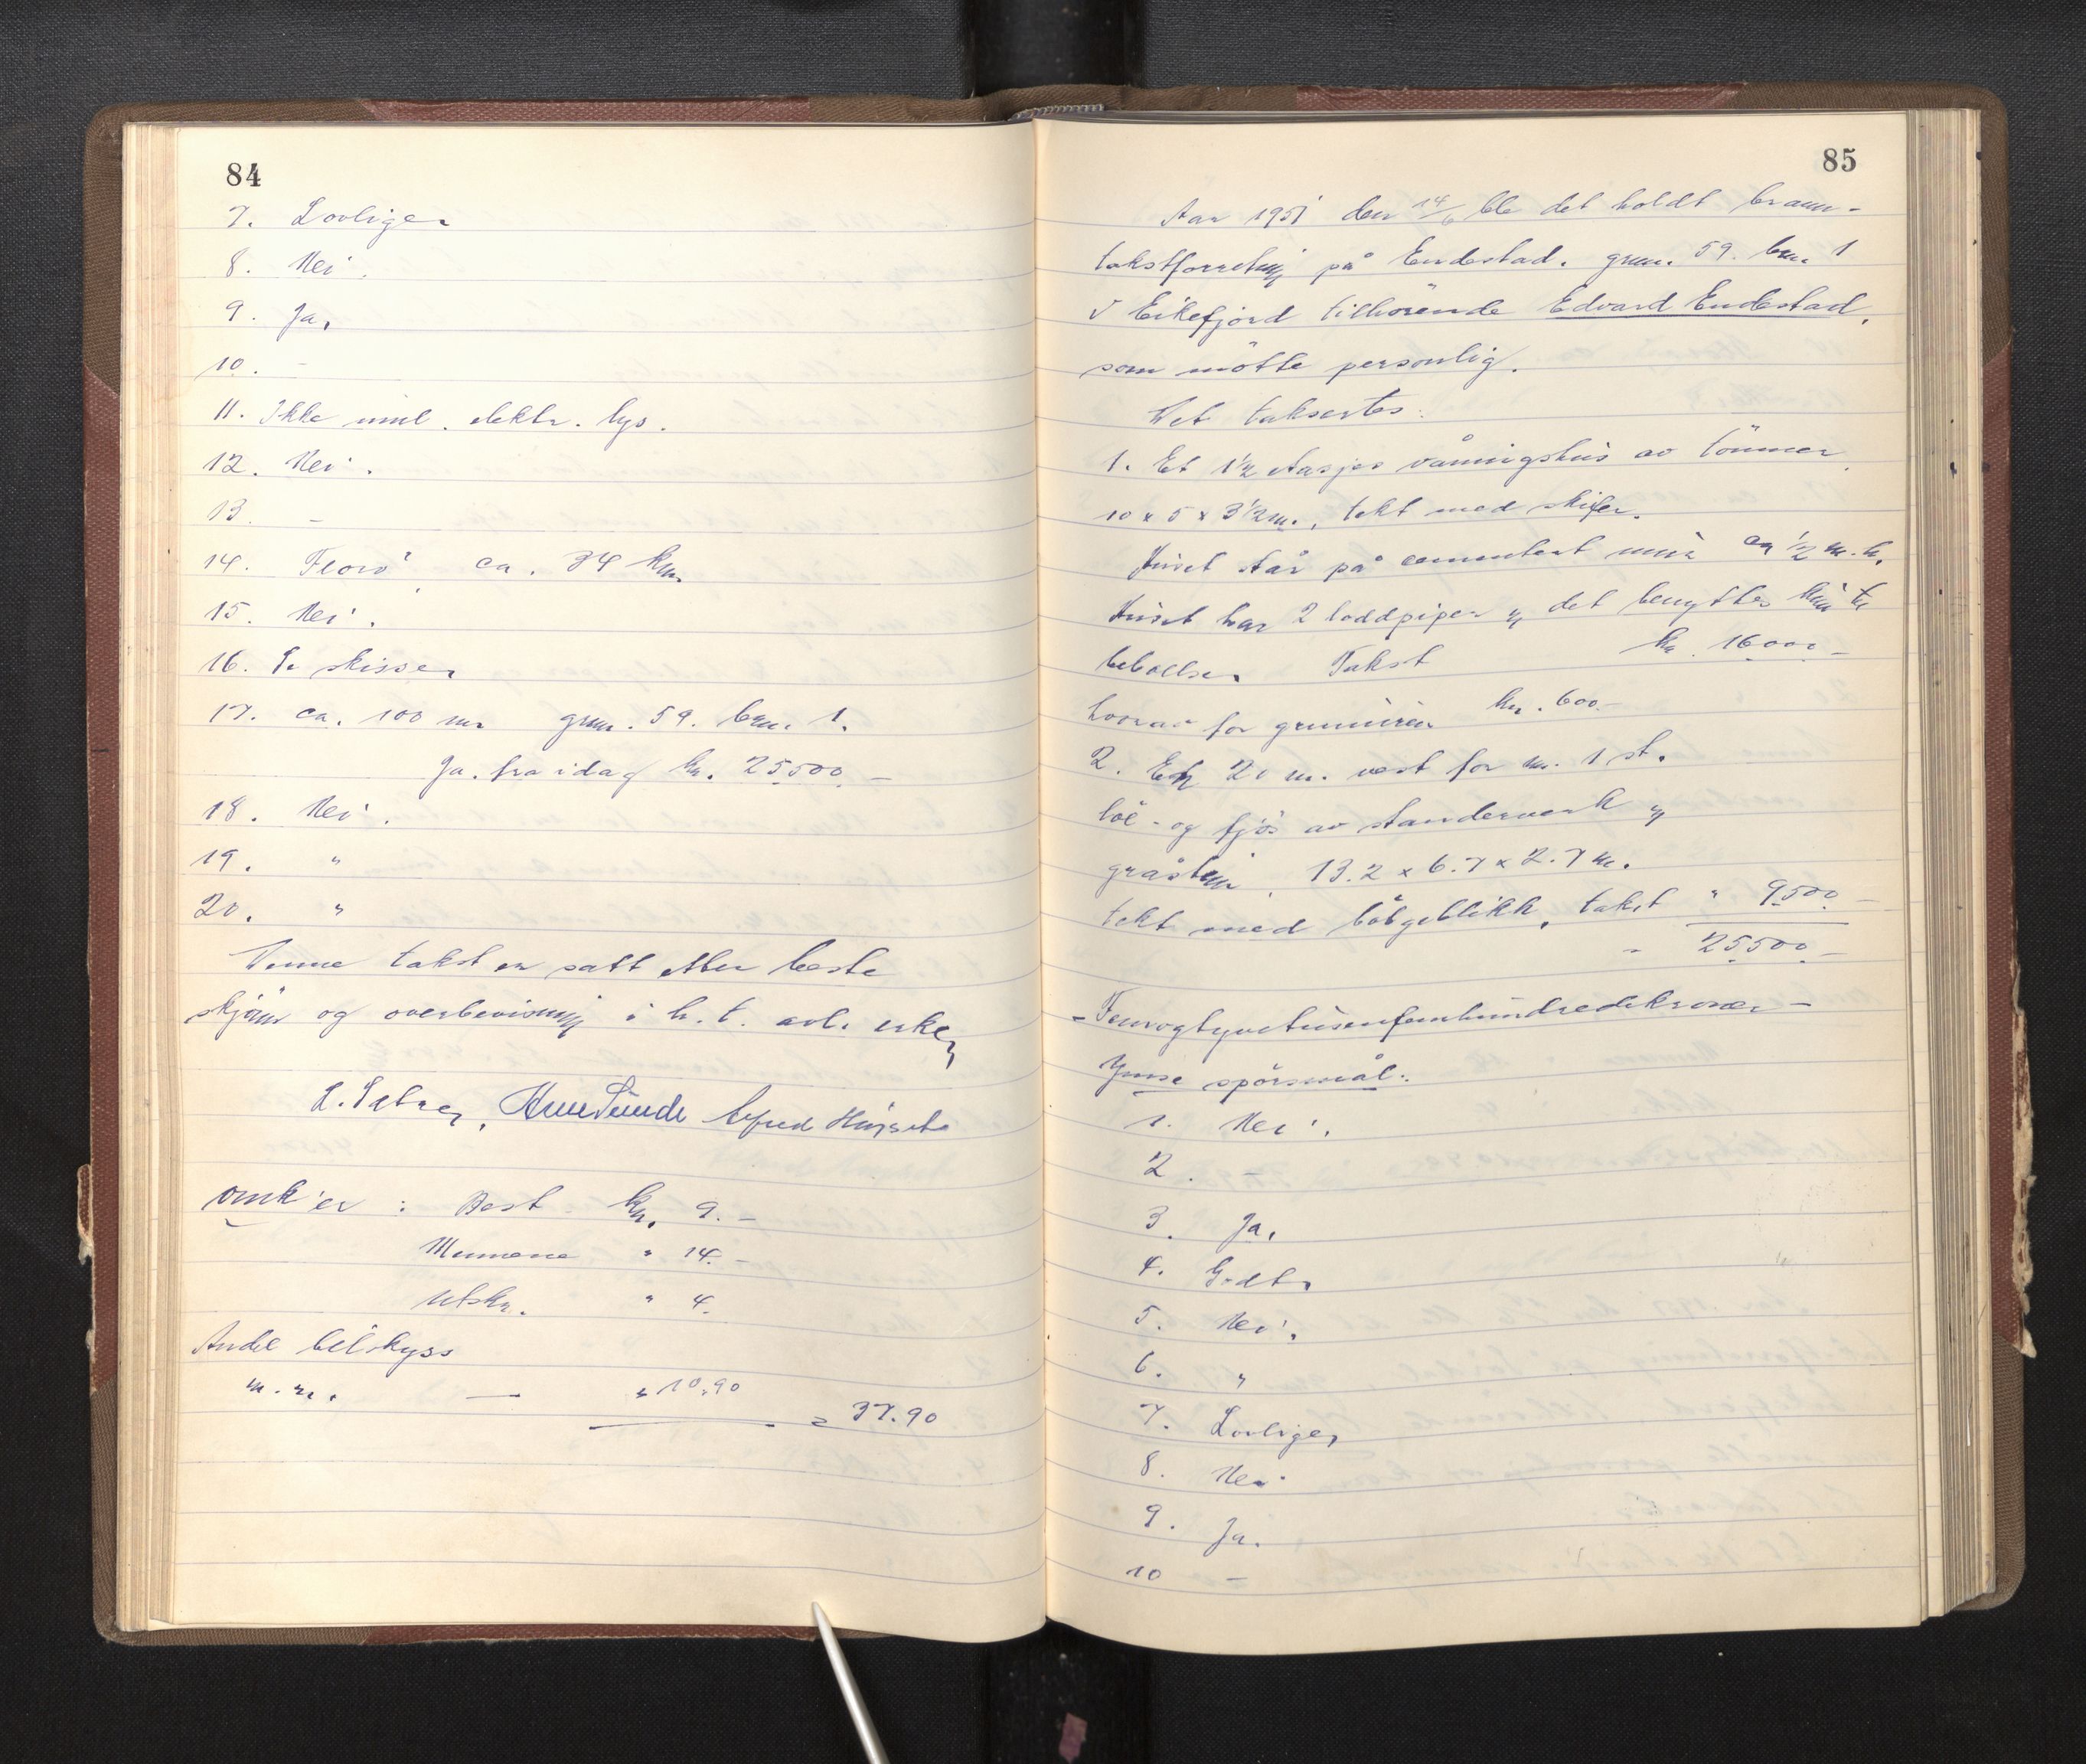 84
7. Lovliger
8. Nei.
9. Ja.
10. -
11. Ikke innl. elektr. lys.
12. Nei.
13. -
14. Florö, ca. 34 km
15. Nei.
16. Se skisser
17. ca. 100 m gnr. 59. bnr. 1.
Ja. fra idag kr. 25500.-
18. Nei.
19. "
20. "
Denne takst er satt etter beste
skjönn og overbevisning i h. t. avl.
L. Sæbrey. Alfred Husseth
omk'er : Best. kr. 9.-
Mennene " 14.-
Utskr. " 4.
Andel bilskyss
m. m. — " 10.90
= 37.90
85
Aar 1951 den 14/6 ble det holdt brann-
takstforretning på Endestad. gnr. 59. bnr. 1
i Eikefjord tilhörende Edvard Endestad,
som mötte personlig.
Det taksertes:
1. Et 1½ etasjes våningshus av tömmer
10 x 5 x 3½ m., tekt med skifer.
Huset står på cementert mur ca ½ m. h.
Huset har 2 loddpiper og det benyttes kun til
beboelse. Takst kr. 16000.-
hvorav for grunnmur kr. 600.-
2. En 20 m. vest for nr. 1 st.
löe- og fjös av standerverk og
gråstein, 13.2 x 6.7 x 2.7 m.
tekt med bölgeblikk, takst " 9500.-
= 25500.-
- Femogtyvetusenfemhundredekroner -
Ymse spörsmål:
1. Nei.
2. -
3. Ja.
4. Godt.
5. Nei.
6. "
7. Lovlige,
8. Nei
9. Ja.
10 -